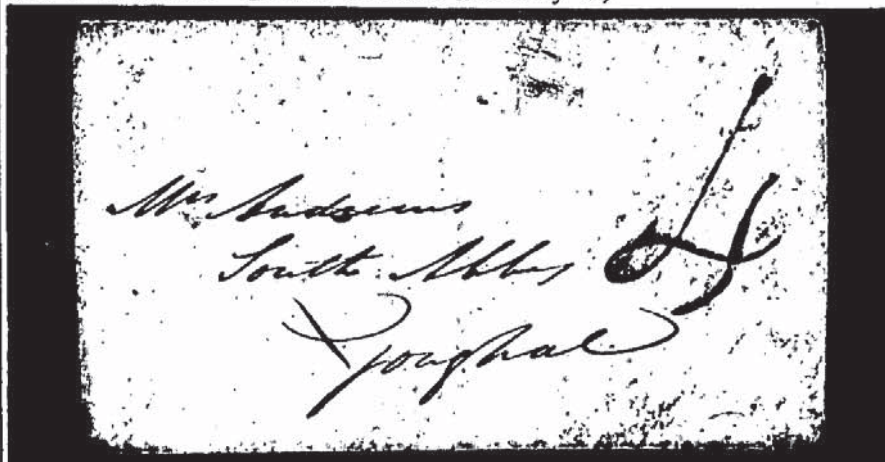 Mrs Andrews
South Abbey
Youghal
4